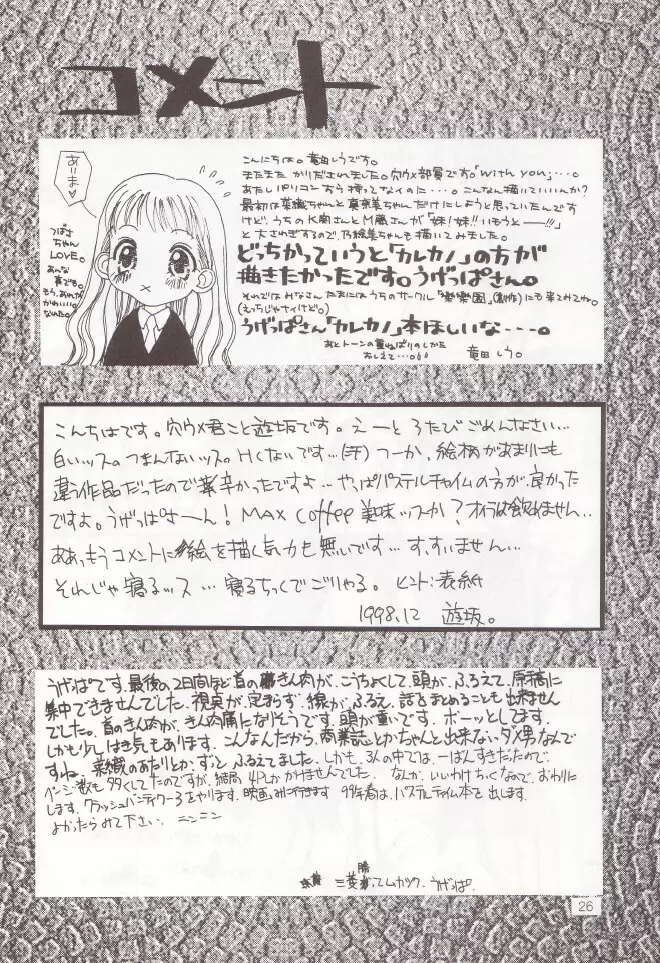 コメント
ありま♡
つばさ
ちゃん
LOVE。
あんな
妻でも。
もう、あれが
かわいい♪
なんだ。
こんにちは。竜田しうです。
またまたかりだされました。穴ウメ部員です。「with you」…。
あたしパソコンすら持ってないのに…。こんなん描いていいんか?
最初は菜織ちゃんと真奈美ちゃんだけにしようと思っていたんです
けど、うちのK南さんとM蔵さんが「妹!妹!!いもうとー!!!」
と大さわぎするので、乃絵美ちゃんも描いてみました。
どっちかっていうと「カレカノ」の方が
描きたかったです。うげっぱさん。
それではみなさん たまにはうちのサークル「楽園」(創作)にも来てみてね。
(えっちじゃナイけど。)
うげっぱさん「カレカノ」本ほしいな---。
あとトーンの重ねばりのしかた
おしえて…。
竜田しう。
こんちはです。穴ウメ君こと遊坂です。えーと ろたびごめんなさい…
白いッス。つまんないッス。Hくないです…(汗) つーか、絵柄があまりにも
違う作品だったので辛かったですよ…やっぱパステルチャイムの方が、良かった
ですよ。うげっぱさーん! MAX Coffee 美味ッスか?オイラは飲めません…
ああ、もうコメントに絵を描く気力も無いです…す、すいません…
そんじゃ寝るッス…寝るちっくでごりゃる。 ヒント:表紙
1998,12 遊坂。
うげっぱです。最後の2日間ほど首のきん肉が、こうちょくして、頭が、ふるえて、原稿に
集中できませんでした。視点が、定まらず、線が、ふるえ、話をまとめることも出来ません
でした。首のきん肉が、きん肉痛になりそうです。頭が重いです。ボーッとしてます。
しかも少しはき気もあります。こんなんだから、商業誌とかちゃんと出来ない、ダメ男なんで
すね。菜織のあたりとか、ずっとふるえてました。しかも、3人の中では、一ばんすきだたので、
ページ数も多くしてたのですが、結局、4Pしかかけませんでした。なんか、いいわけちっくなので、おわりに
します。クラッシュバンディクー3をやります。映画みに行きます。99年春は、パステルチャイム本を出します。
よかったらみて下さい。ニンニン
三菱勝ってムカツク。うげっぱ。
26